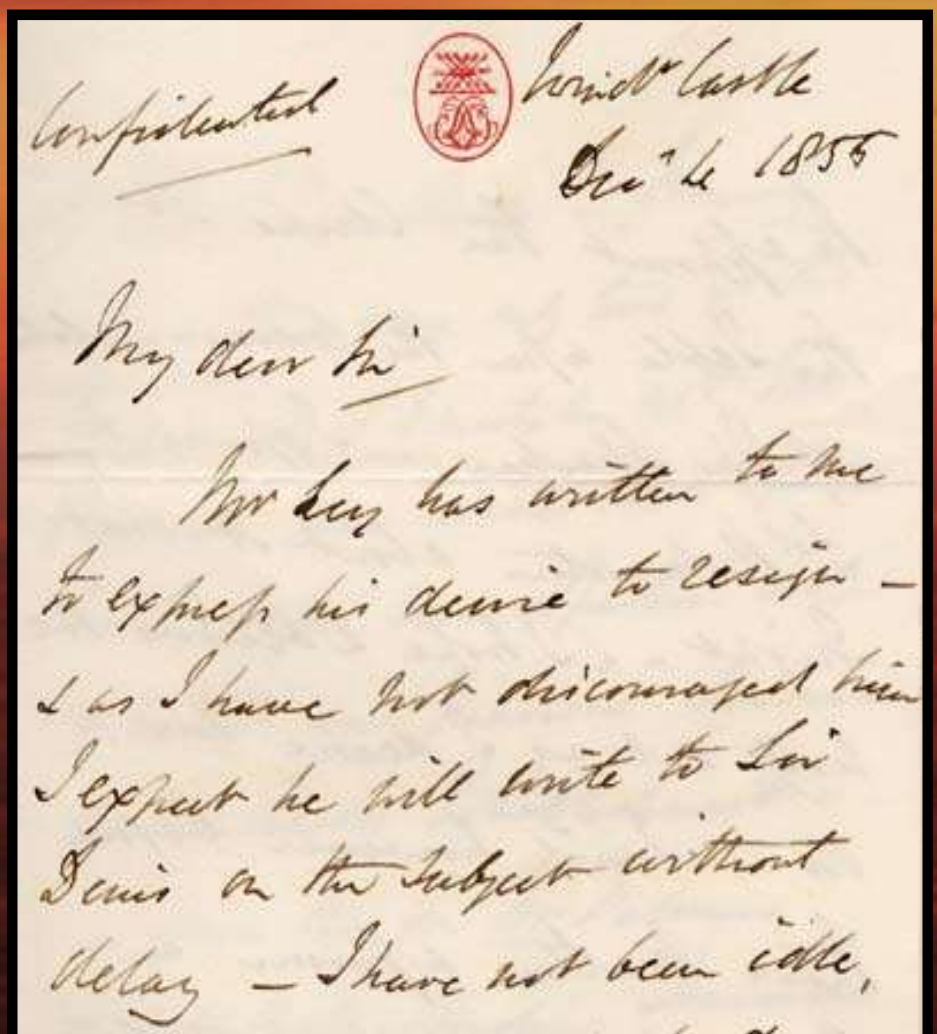 Confidential
Windr Castle
Decr 4 1855
My dear Sir
Mr Ley has written to me
to express his desire to resign –
& as I have not discouraged him
I expect he will write to Sir
Denis on the subject without
delay – I have not been idle,